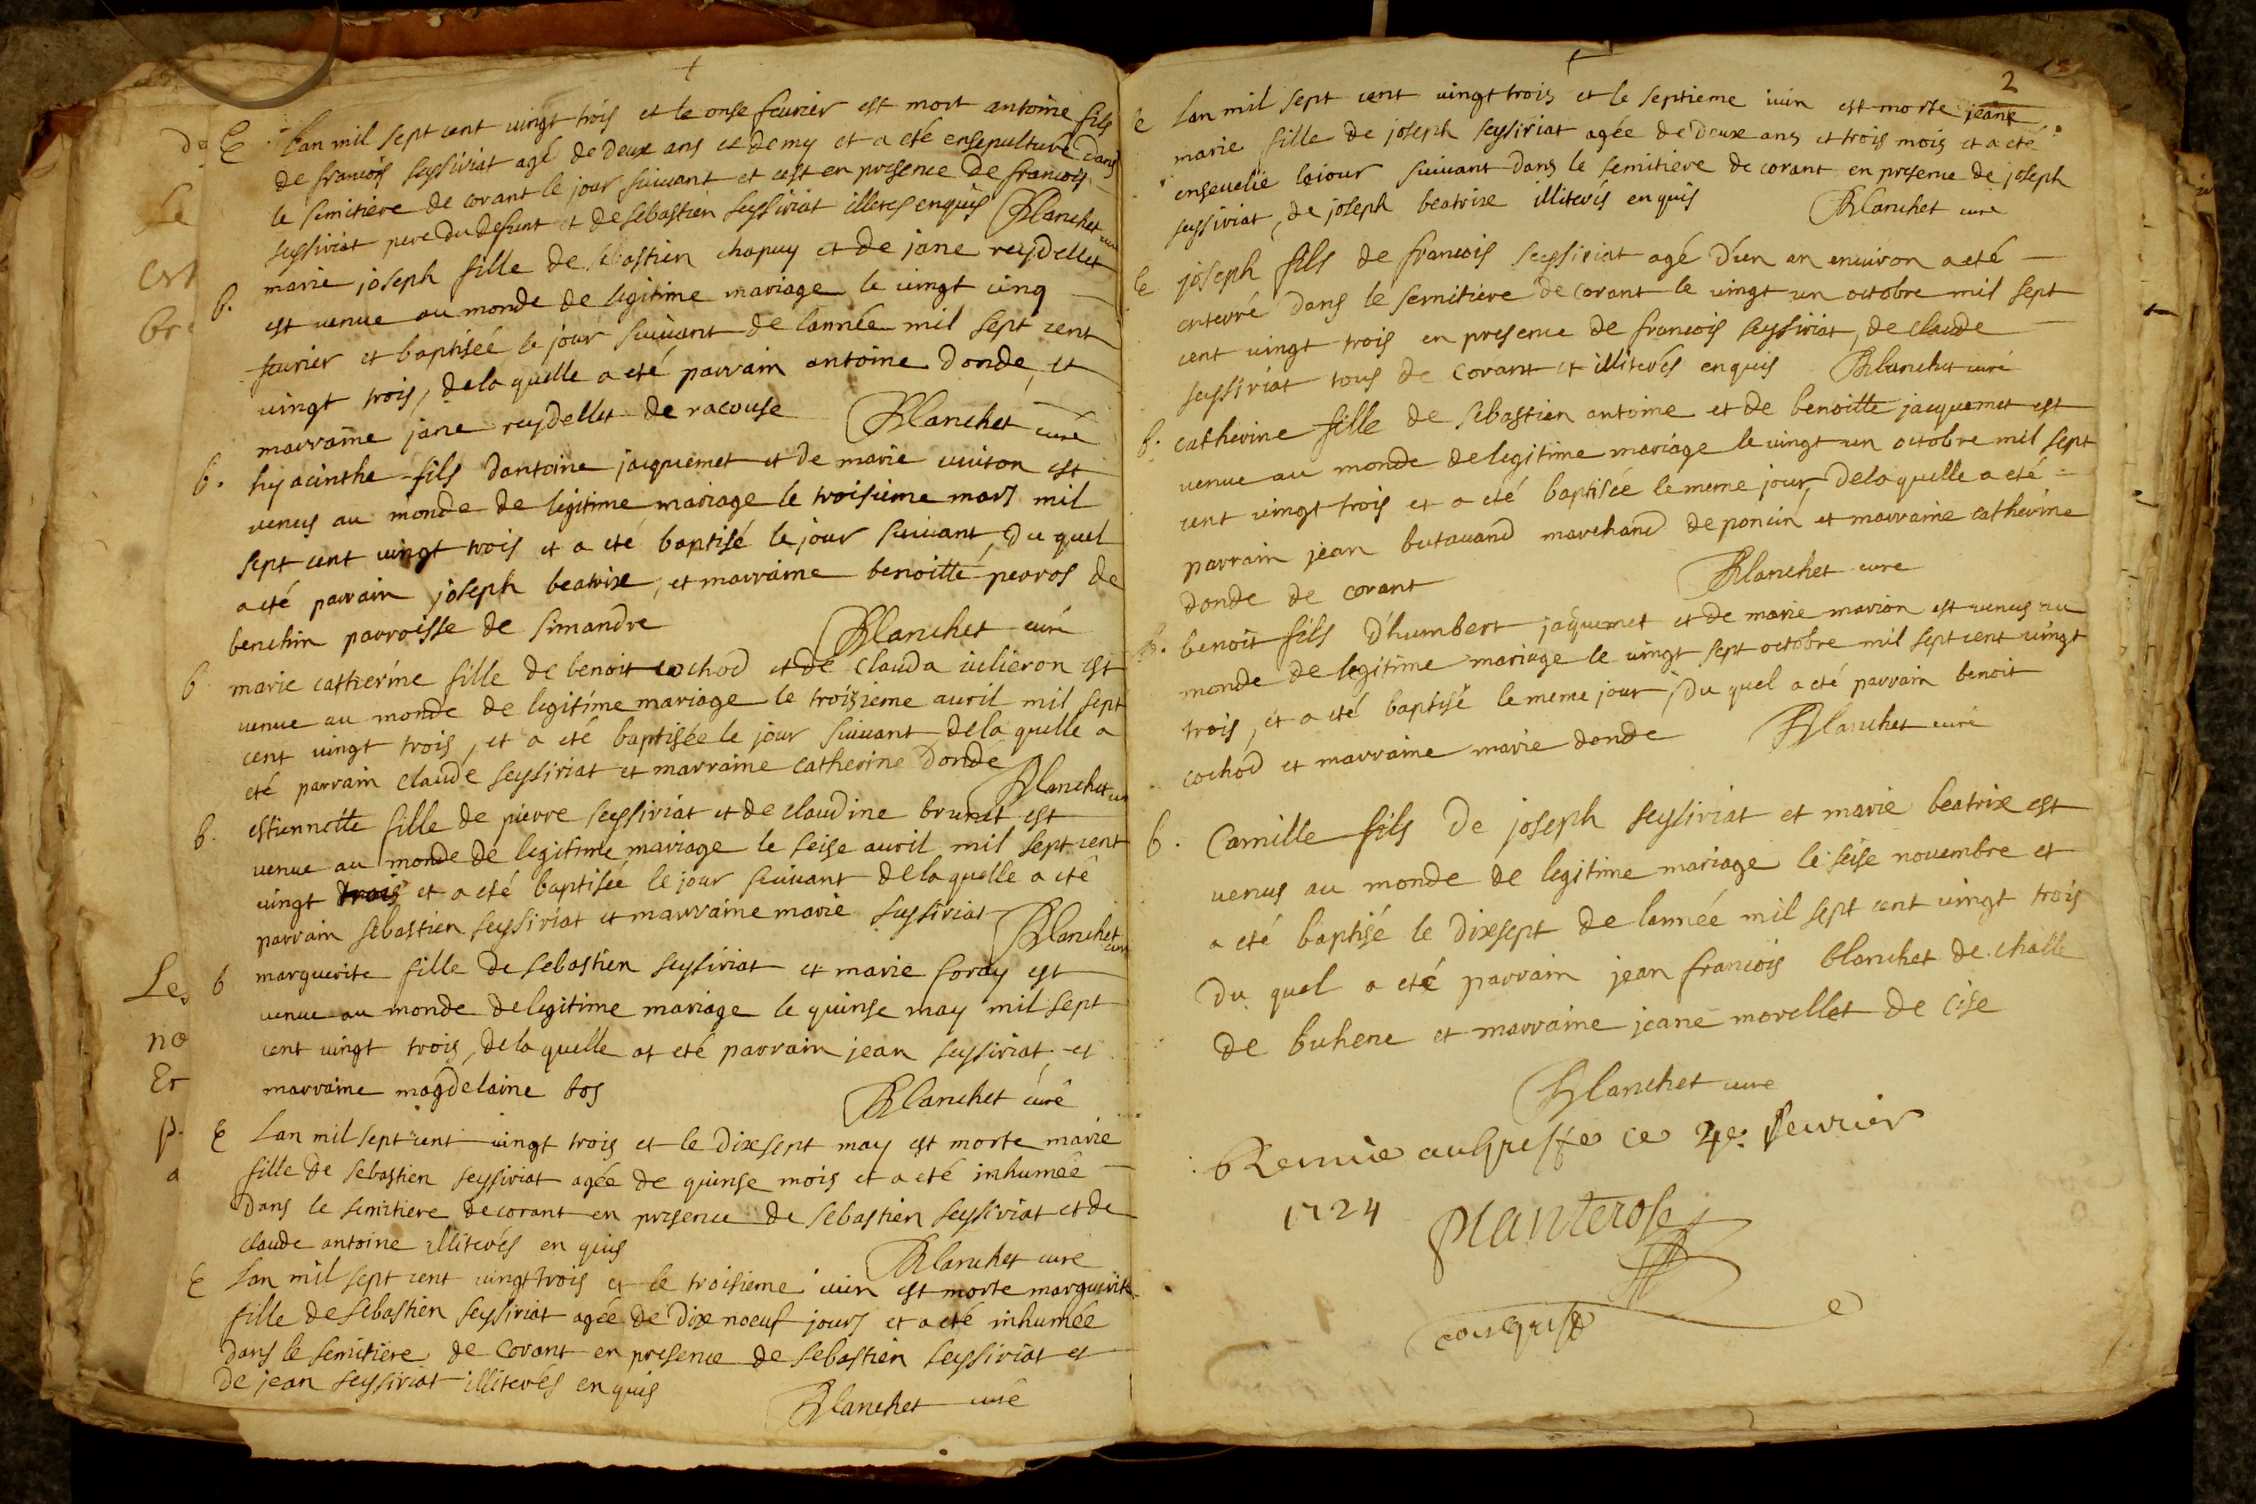 E Lan mil sept cent vingt trois et le onse feurier est mort antoine fils
de francois seyssiriat agé de deux ans et demy et a eté ensepulturé dans
le semitiere de corant le jour suiuant et cest en presence de francois
seyssiriat pere du defunt et de sebastien seyssiriat illeres enquis Blanchet curé
b. marie joseph fille de sebastien chapuy et de jane reydellet
est venue au monde de legitime mariage le vingt cinq
feurier et baptisée le jour suiuant de lannée mil sept cent
vingt trois, de la quelle a eté parrain antoine donde, et
marraine jane reydellet de racouse Blanchet curé
b. hyacinthe fils dantoine jacquemet et de marie vuiton est
venus au monde de legitime mariage le troisieme mars mil
sept cent vingt trois et a eté baptisé le jour suiuant, du quel
a eté parrain joseph beatrix, et marraine benoitte perros de
benchin parroisse de simandre Blanchet curé
b marie catherine fille de benoit cochod et de clauda iulieron est
venue au monde de legitime mariage le troisieme auril mil sept
cent vingt trois, et a eté baptisée le jour suiuant de la quelle a
eté parrain claude seyssiriat et marraine catherine donde Blanchet curé
b. estiennette fille de pierre seyssiriat et de claudine brunet est
venue au monde de legitime mariage le seise auril mil sept cent
vingt trois et a eté baptisée le jour suiuant de la quelle a eté
parrain sebastien seyssiriat et marraine marie seyssiriat Blanchet curé
b marguerite fille de sebastien seyssiriat et marie soray est
venue au monde de legitime mariage le quinse may mil sept
cent vingt trois, de la quelle at eté parrain jean seyssiriat et
marraine magdelaine bos Blanchet curé
E Lan mil sept cent vingt trois et le dixsept may est morte marie
fille de sebastien seyssiriat agée de quinse mois et a eté inhumée
dans le semitiere de corant en presence de sebastien seyssiriat et de
claude antoine illiterés en quis Blanchet curé
E Lan mil sept cent vingt trois et le troisieme iuin est morte marguerite
fille de sebastien seyssiriat agée de dix noeuf jours et a eté inhumée
dans le semitiere de corant en presence de sebastien seyssiriat et
de jean seyssiriat illiterés en quis Blanchet curé
2
e Lan mil sept cent vingt trois et le septieme iuin est morte jeane
marie fille de joseph seyssiriat agée de deux ans et trois mois et a eté
enseuelie le iour suiuant dans le semitiere de corant en presence de joseph
seyssiriat, de joseph beatrix illiterés en quis Blanchet curé
e joseph fils de francois seyssiriat agé d'un an enuiron a eté
enterré dans le semitiere de corant le vingt un octobre mil sept
cent vingt trois en presence de francois seyssiriat, de claude
seyssiriat tous de corant et illiterés en quis Blanchet curé
b. catherine fille de sebastien antoine et de benoitte jacquemet est
venue au monde de legitime mariage le vingt un octobre mil sept
cent vingt trois et a eté baptisée le meme jour, de la quelle a eté
parrain jean butauand marchand de poncin et marraine catherine
donde de corant Blanchet curé
B. benoit fils d'humbert jaquemet et de marie marion est venus au
monde de legitime mariage le vingt sept octobre mil sept cent vingt
trois, et a eté baptisé le meme jour, du quel a eté parrain benoit
cochod et marraine marie donde Blanchet curé
b. Camille fils de joseph seyssiriat et marie beatrix est
venus au monde de legitime mariage le seise novembre et
a eté baptisé le dixsept de lannée mil sept cent vingt trois
du quel a eté parrain jean francois blanchet de challe
de buhene et marraine jeane morellet de cise
Blanchet curé
Remie au greffe ce 4e. feurier
1724 Planterose